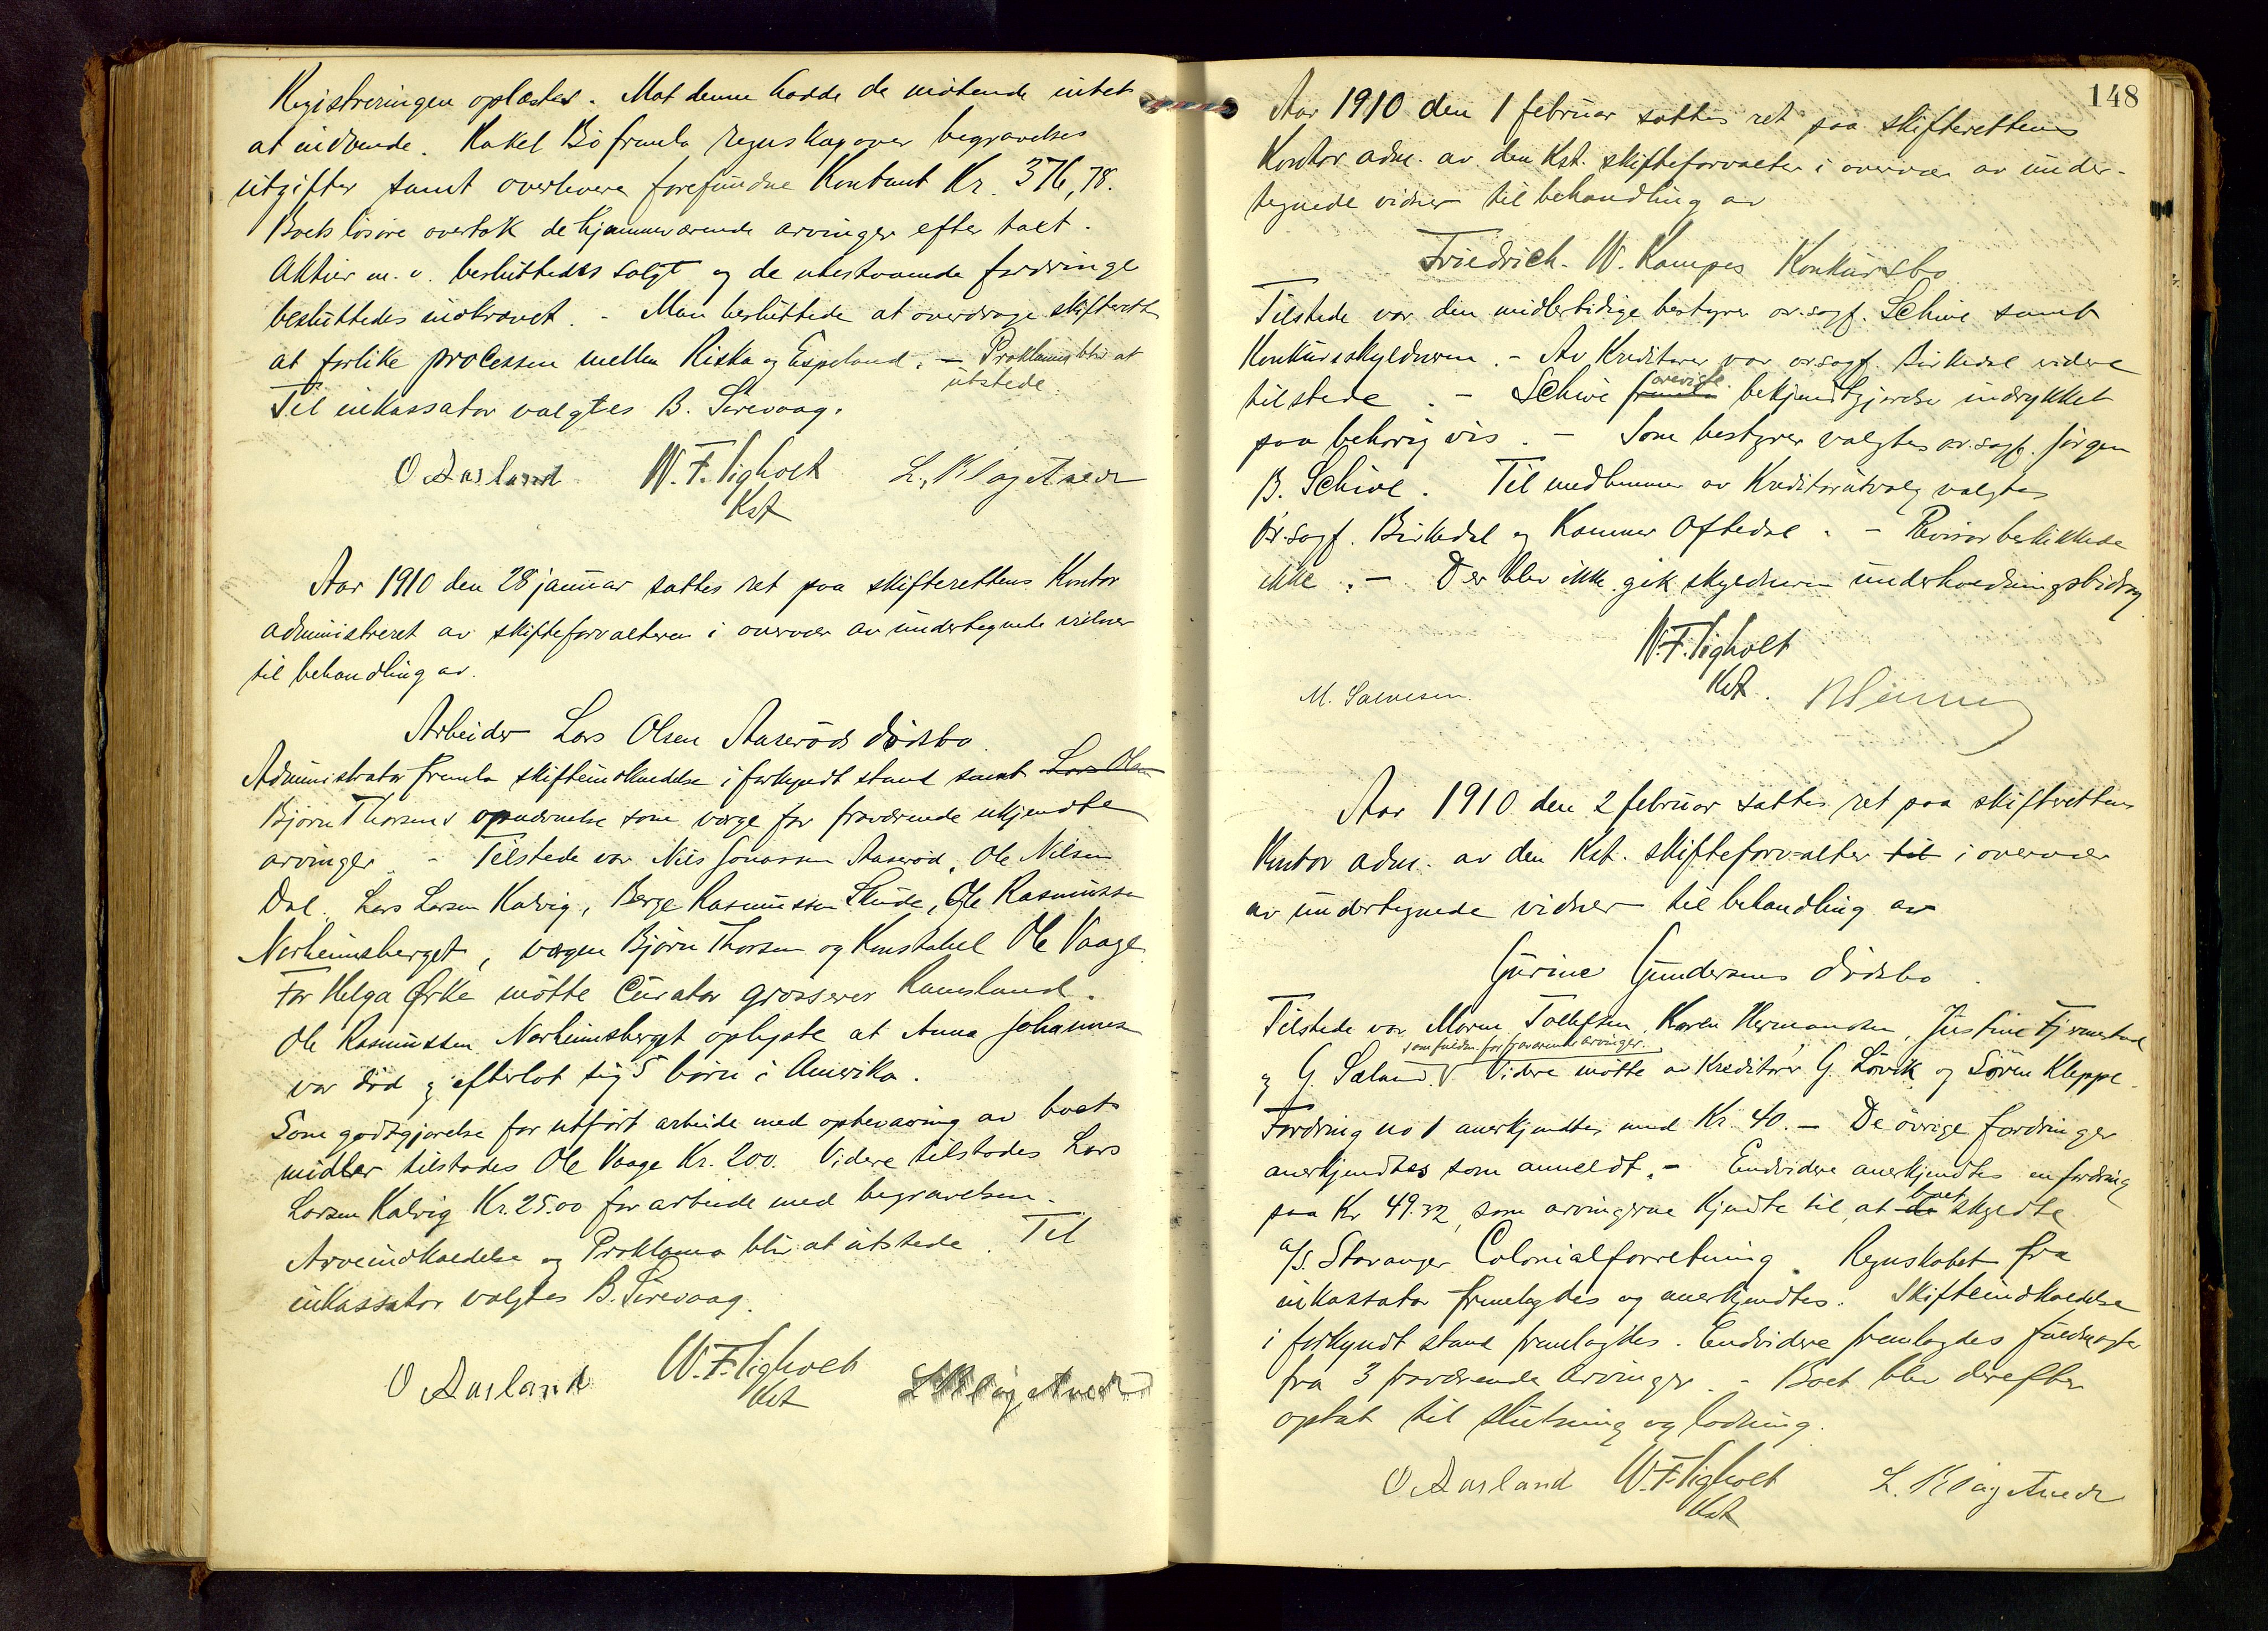 Registreringen oplæstes. Mot denne hadde de møtende intet
at indvende. Rakel Bö fremla regnskap over begravelses
utgifter samt overlevere forefundne Kontant Kr. 376,78.
Boets lösöre overtok de hjemmeværende arvinger efter takt.
Aktier m. v. besluttedes solgt og de utestaaende fordringe
besluttedes indkrævet. - Man besluttede at overdrage skifterett
at forlike processen mellem Riska og Espeland. - Proklama blir at
utstede.
Til inkassator valgtes B. Sirevaag.
O Aarland W. F. Vigholt L. Klagstuedt
Kst
Aar 1910 den 28 januar sattes ret paa skifterettens Kontor
administreret av skifteforvalteren i overvær av undertegnede vidner
til behandling av.
Arbeider Lars Olsen Aaseröds dödsbo.
Administrator fremla skifteindkaldelse i forkyndt stand samt Lars Olsen
Bjørn Thorsens opnævnelse som værge for fraværende ukjendte
arvinger. - Tilstede var Nils Jonassen Aaseröd, Ole Nilsen
Dal, Lars Larsen Kalvig, Berge Rasmussen Skude, Ole Rasmussen
Norheimsberget, værgen Bjørn Thorsen og Konstabel Ole Vaage
For Helga Ørke mötte Curator grosserer Ramsland.
Ole Rasmussen Norheimsberget oplyste at Anna Johannes
var död og efterlot sig 5 börn i Amerika.
Som godtgjörelse for utfört arbeide med opbevaring av boets
midler tilstodes Ole Vaage Kr. 200. Videre tilstodes Lars
Larsen Kalvig Kr. 25.00 for arbeide med begravelsen.
Arveindkaldelse og Proklama blir at utstede. Til
inkassator valgtes B. Sirevaag.
O Aarland W. F. Vigholt L Klagstuedt
Kst
148
Aar 1910 den 1 februar sattes ret paa skifterettens
Kontor adm. av den Kst. skifteforvalter i overvær av under-
tegnede vidner til behandling av
Friedrich. W. Kampes Konkursbo
Tilstede var den midlertidige bestyrer ov. sagf. Schive samt
Konkursskyldneren. - Av Kreditorer var ov. sagf. Birkedal videre
tilstede. - Schive fremla foreviste bekjendtgjørelse indrykket
paa behörig vis. - Som bestyrer valgtes ov. sagf. Jørgen
B. Schive. Til medlemmer av Kreditorutvalg valgtes
Ov. sagf. Birkedal og Kammer Oftedal. - Revisor beskikkedes
ikke. - Der blev ikke git skyldneren underholdningsbidrag
W. F. Vigholt
M. Salvesen Kst.
Aar 1910 den 2 februar sattes ret paa skifterettens
Kontor adm. av den Kst. skifteforvalter til i overvær
av undertegnede vidner til behandling av
Gurine Gundersens dödsbo.
Tilstede var Maren Tollefsen, Karen Hermansen, Justine Fjermestad
som fuldm. for fraværende arvinger.
og G. Sæland. Videre mötte av Kreditörer G. Lövik og Sören Kleppe.
Fordring no 1 anerkjendtes med Kr. 40. - De övrige fordringer
anerkjendtes som anmeldt. - Endvidere anerkjendtes en fordring
paa Kr 49.32, som arvingerne kjendte til at de boet skyldte
a/s. Stavanger Colonialforretning. Regnskabet fra
inkassator fremlagdes og anerkjendtes. Skifteindkaldelse
i forkyndt stand fremlagdes. Endvidere fremlagdes fuldmagter
fra 3 fraværende arvinger. - Boet blev derefter
optat til slutning og lodning.
O Aarland W. F. Vigholt L. Klagstuedt
Kst